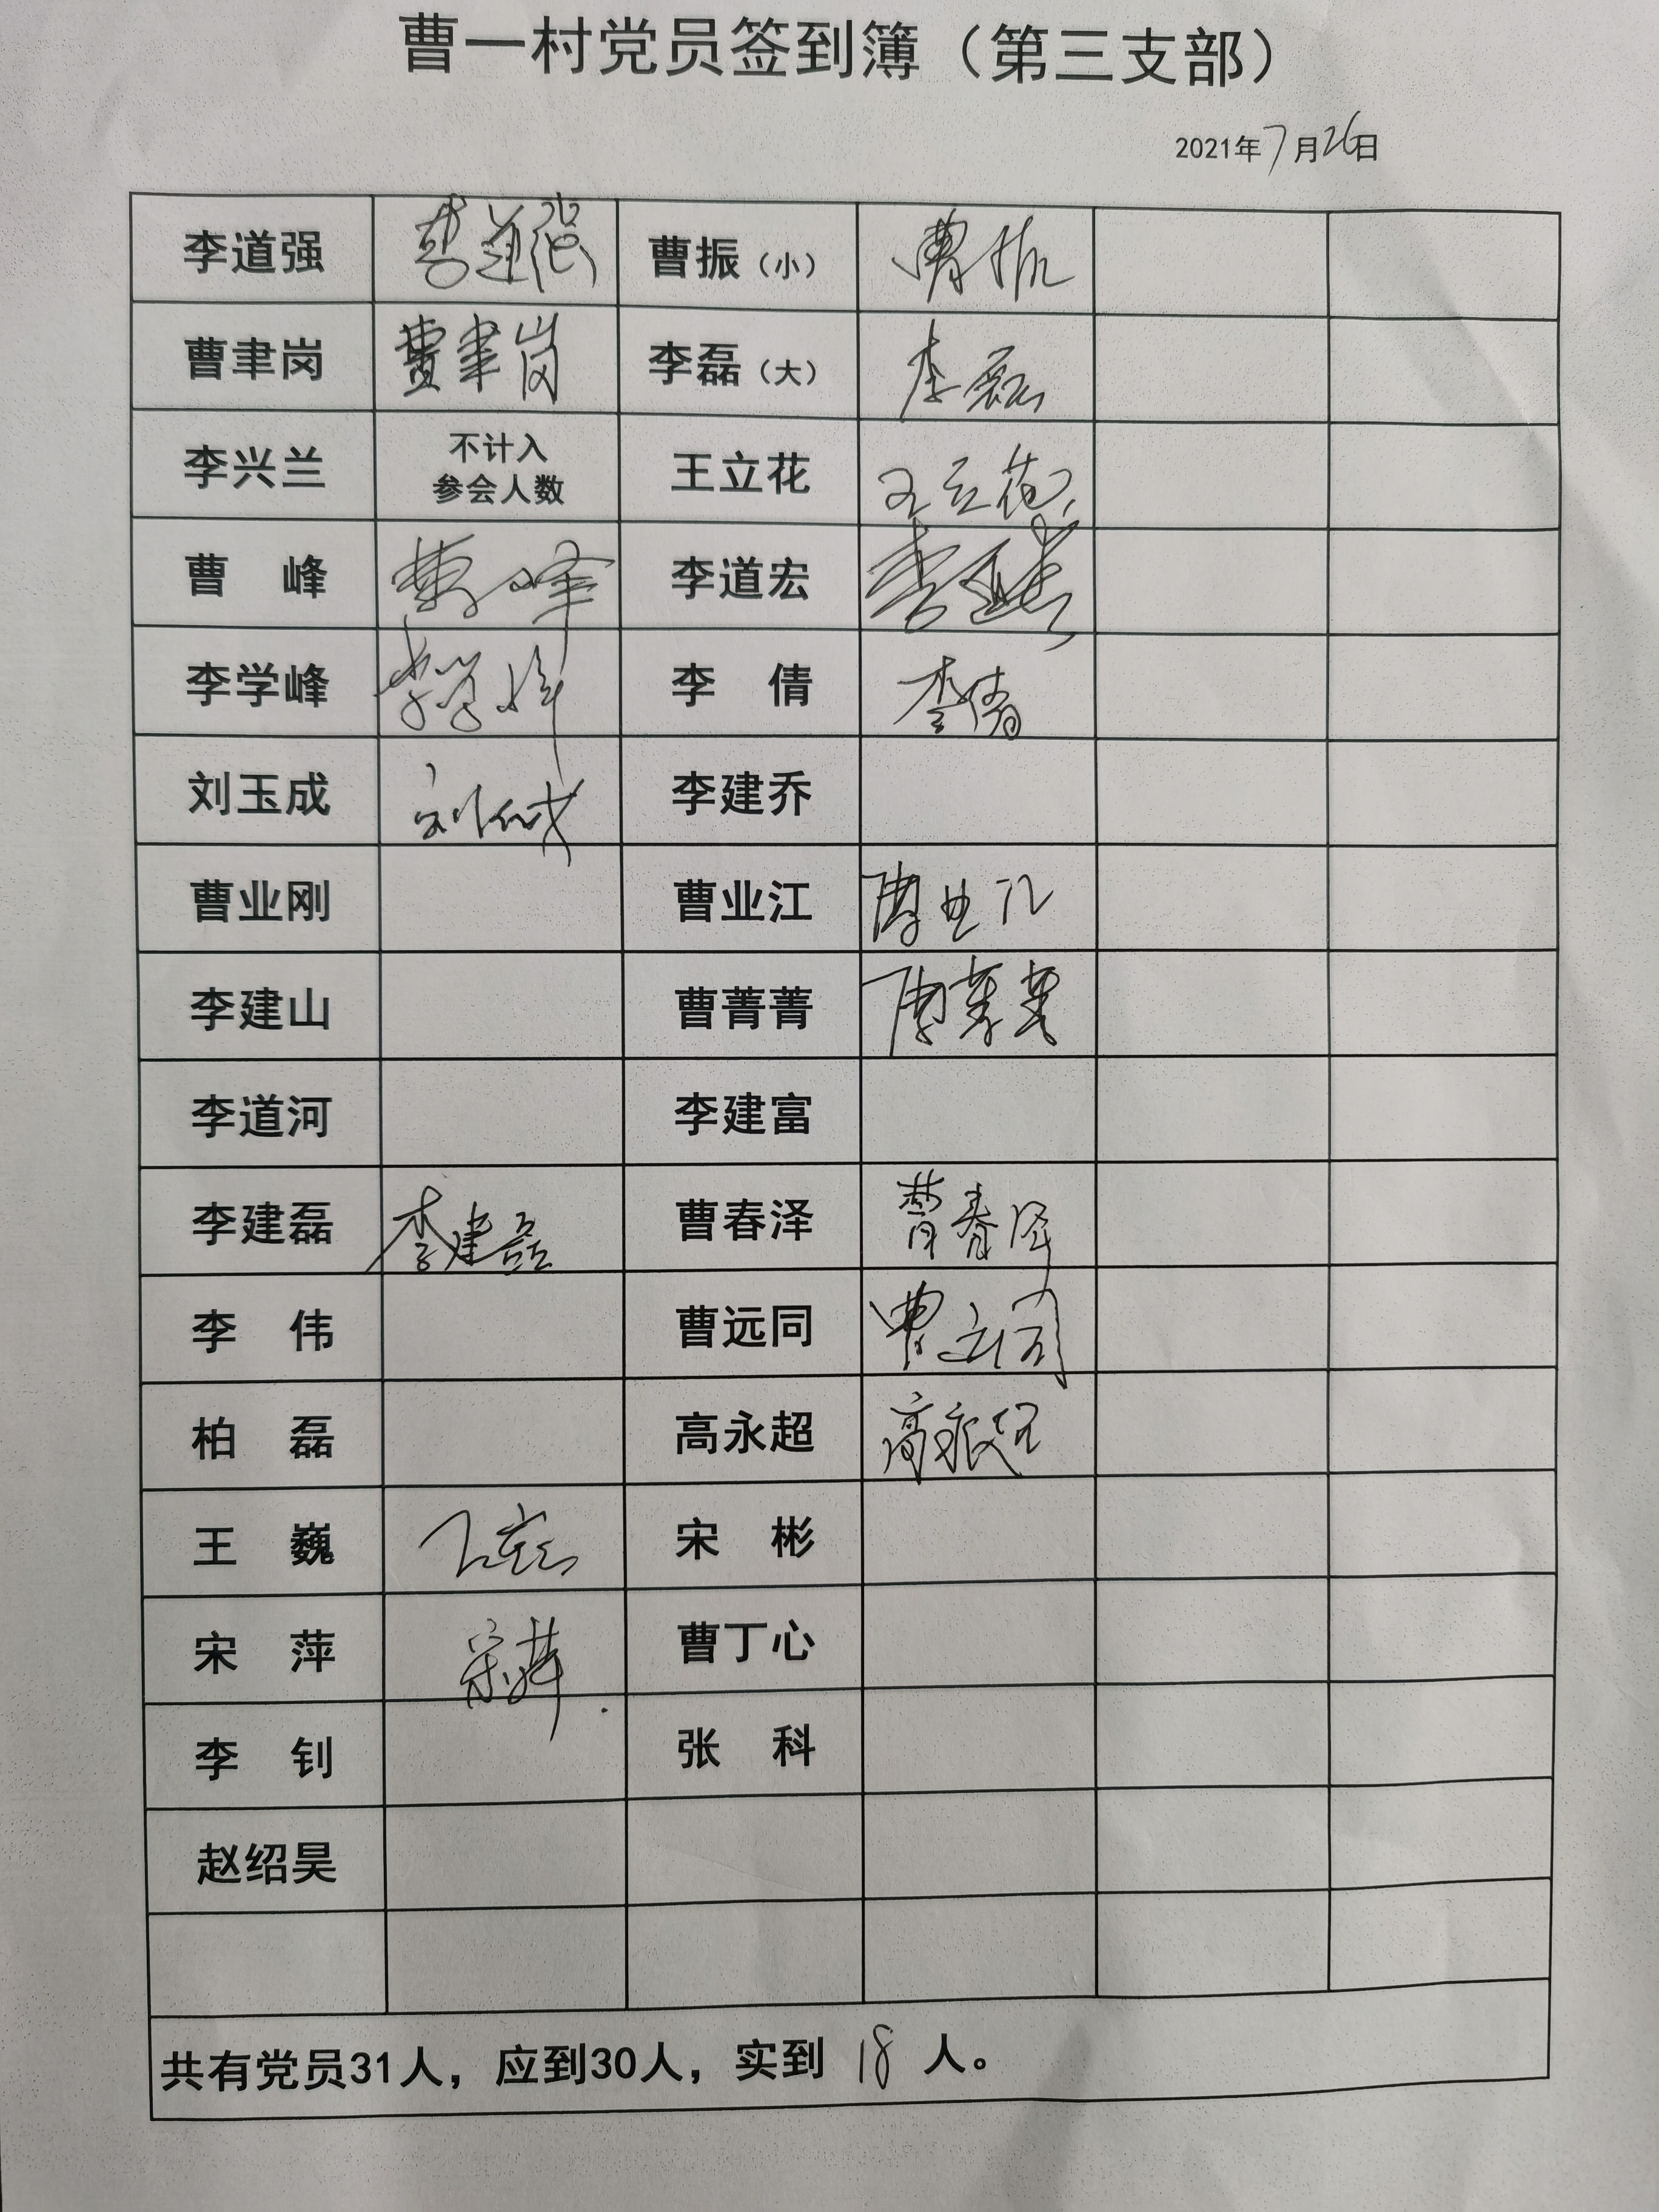 曹一村党员签到簿（第三支部）
2021年7月26日
李道强 李道强 曹振（小） 曹振
曹聿岗 曹聿岗 李磊（大） 李磊
李兴兰 不计入 参会人数 王立花 王立花
曹 峰 曹峰 李道宏 李道宏
李学峰 李学峰 李 倩 李倩
刘玉成 刘玉成 李建乔
曹业刚 曹业江 曹业江
李建山 曹菁菁 曹菁菁
李道河 李建富
李建磊 李建磊 曹春泽 曹春泽
李 伟 曹远同 曹远同
柏 磊 高永超 高永超
王 巍 王巍 宋 彬
宋 萍 宋萍 曹丁心
李 钊 张 科
赵绍昊
共有党员31人，应到30人，实到 18 人。